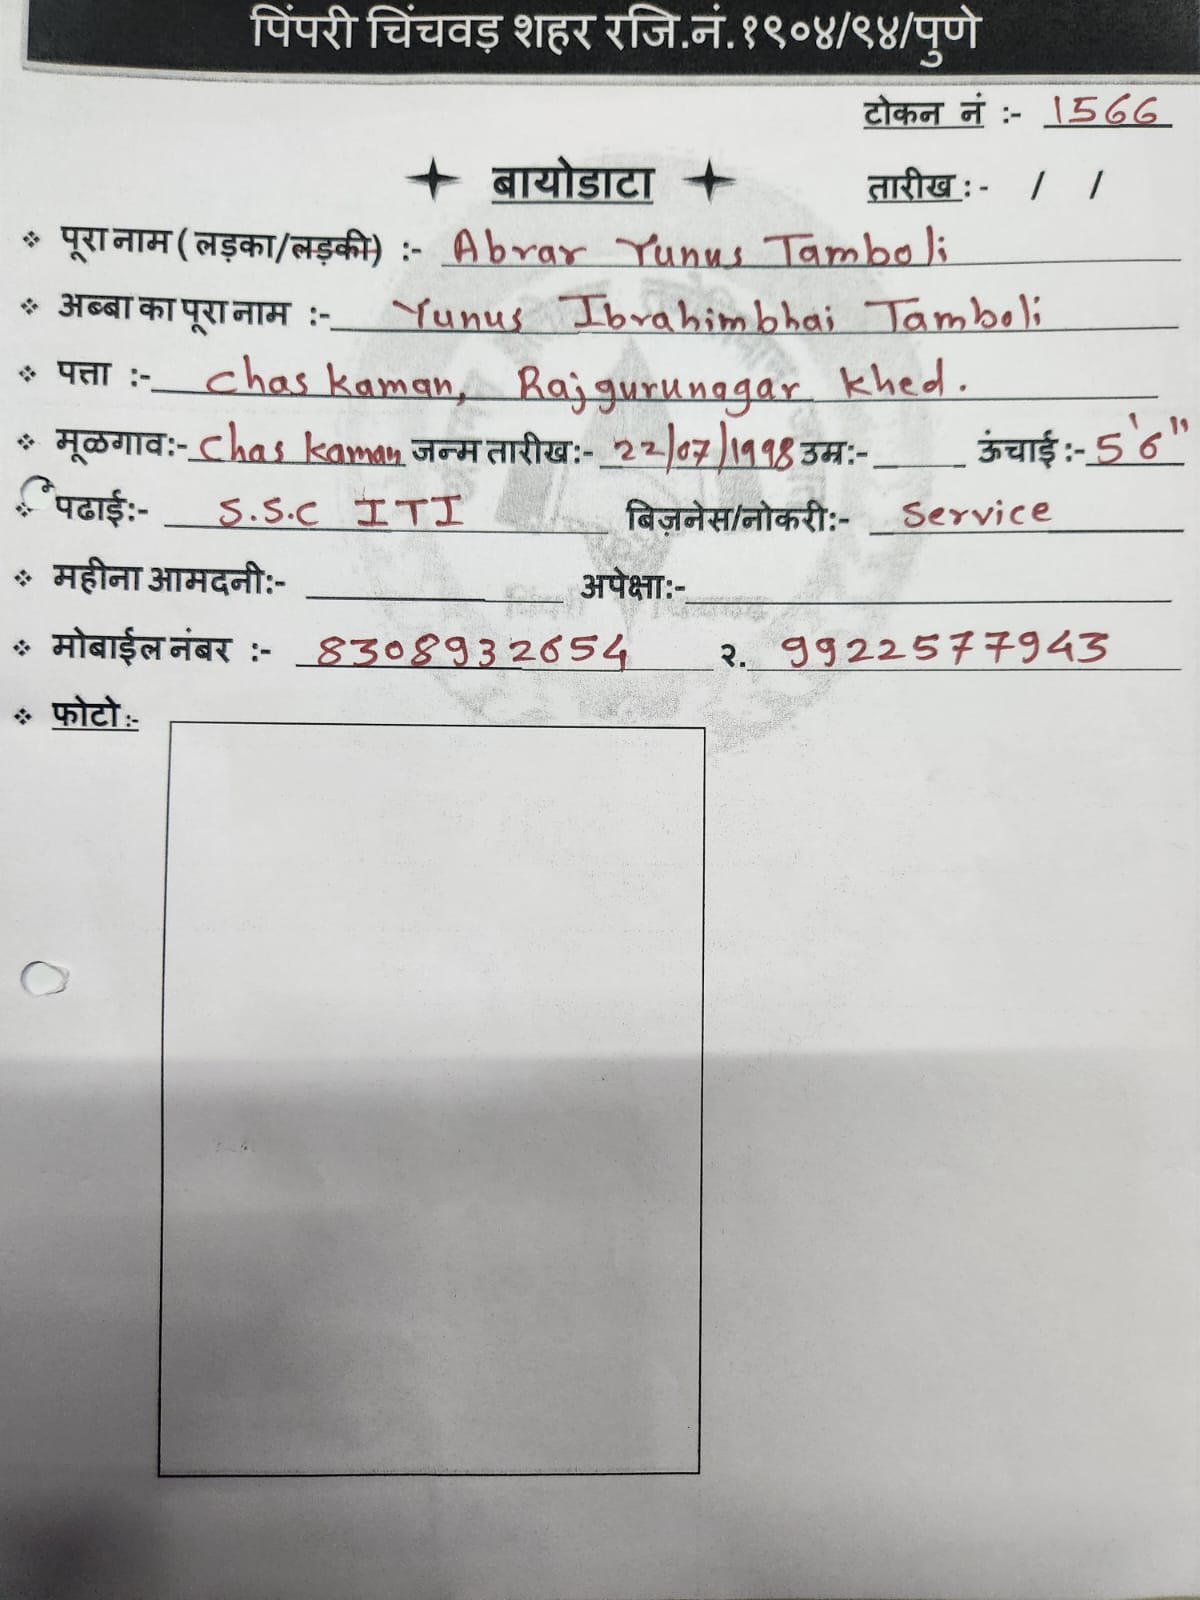 पिंपरी चिंचवड़ शहर रजि.नं.१९०४/९४/पुणे
टोकन नं :- 1566
बायोडाटा तारीख :- / /
पूरा नाम ( लड़का/लड़की) :- Abrar Yunus Tamboli
अब्बा का पूरा नाम :- Yunus Ibrahimbhai Tamboli
पत्ता :- Chas kaman, Rajgurunagar khed.
मूळगाव:- Chas kaman जन्म तारीख:- 22/07/1998 उम्र:- ऊंचाई :- 5'6"
पढाई:- S.S.C ITI बिज़नेस/नोकरी:- Service
महीना आमदनी:- अपेक्षा:-
मोबाईल नंबर :- 8308932654 २. 9922577943
फोटो :-